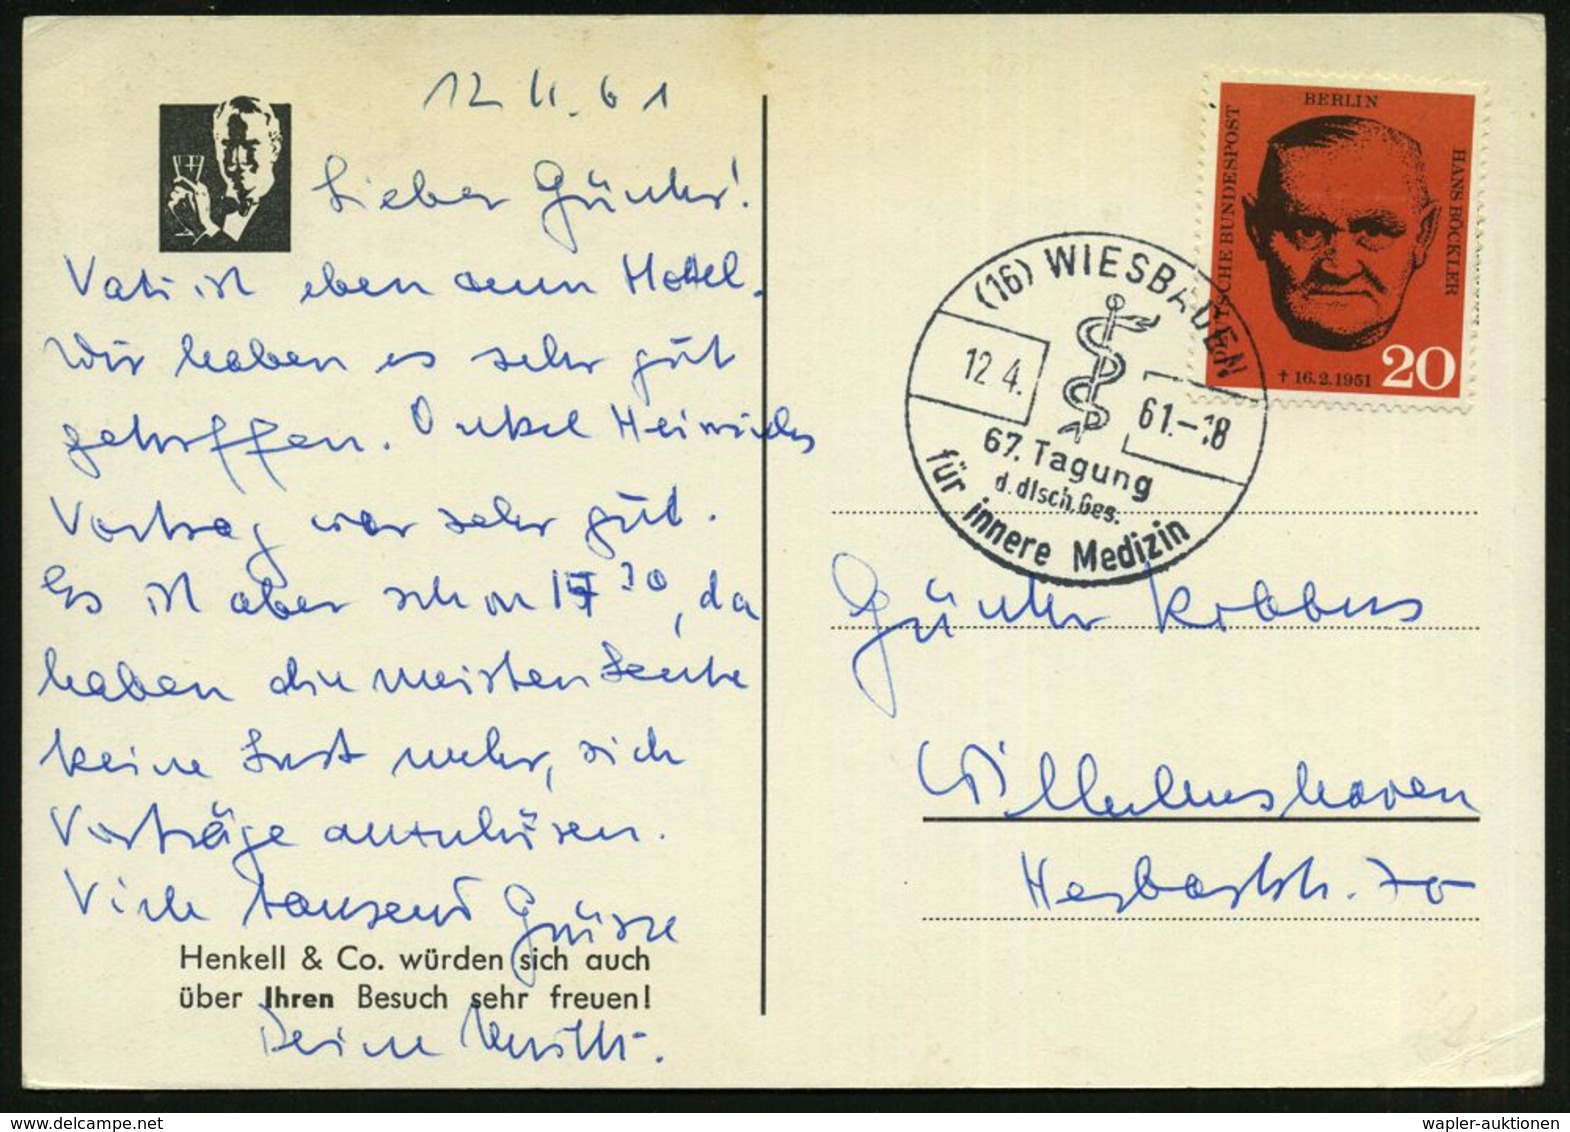 12.4.61
Lieber Günter!
Vati ist eben am Hotel.
Wir haben es sehr gut
getroffen. Onkel Heinrichs
Vortrag war sehr gut.
Es ist aber schon 17 30, da
haben die meisten Leute
keine Lust mehr, sich
Vorträge anzuhören.
Viele tausend Grüsse
Henkell & Co. würden sich auch
über Ihren Besuch sehr freuen!
Deine
DEUTSCHE BUNDESPOST
BERLIN
HANS BÖCKLER
† 16.2.1951 20
(16) WIESBADEN
12.4. 61.-18
67. Tagung
d. dtsch. Ges.
für innere Medizin
Günter
Wilhelmshaven
Herbartstr. 70
wapler-auktionen